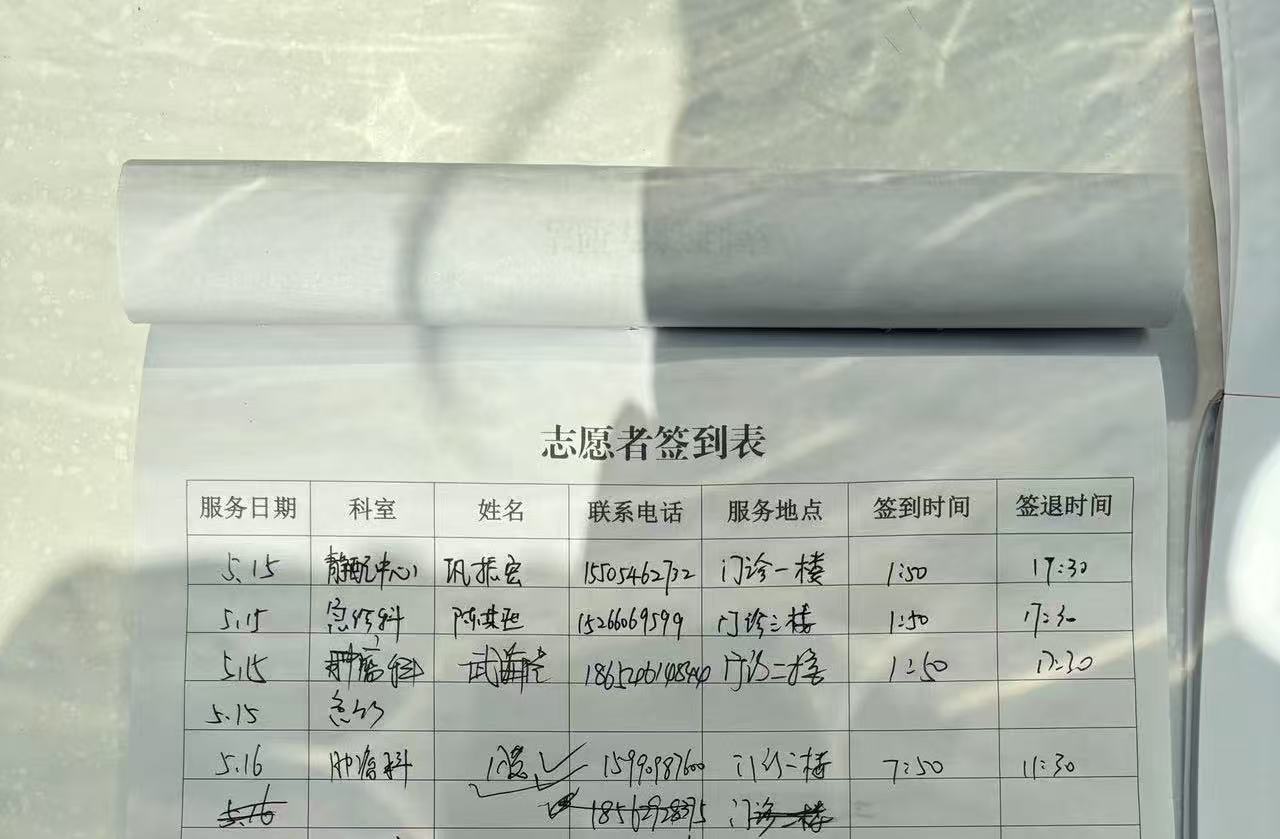 志愿者签到表
服务日期 科室 姓名 联系电话 服务地点 签到时间 签退时间
5.15 静配中心 巩振宏 15505462732 门诊一楼 1:50 17:30
5.15 急诊科 陈其 15266069599 门诊三楼 1:50 17:30
5.15 肿瘤科 武 门诊二楼 1:50 17:30
5.15 急诊
5.16 肿瘤科 15990987600 门诊二楼 7:50 11:30
5.16 门诊二楼